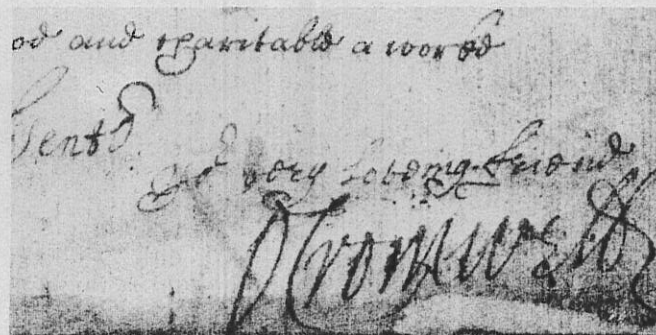 od and charitable a worke
Gents
Yor very loveing friend
OCromwell